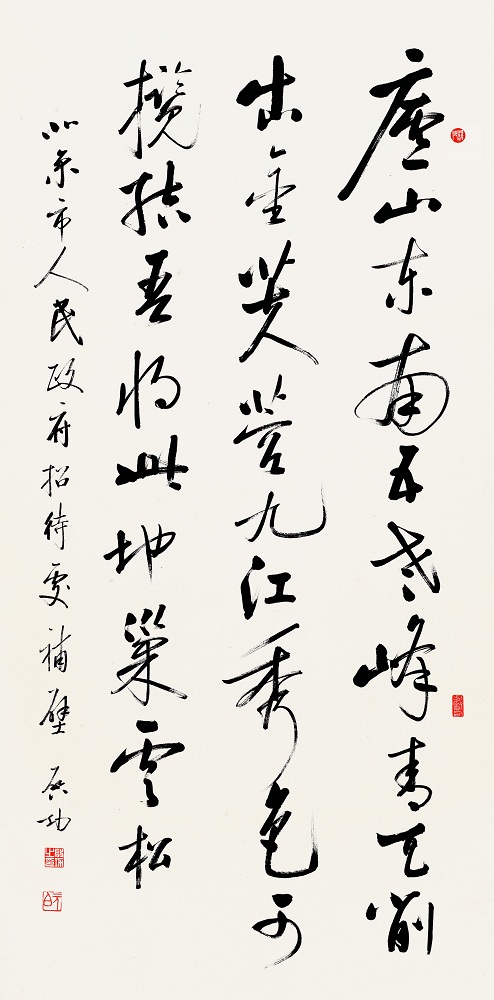 廬山東南五老峰青天削
出金芙蓉九江秀色可
攬結吾將此地巢雲松
北京市人民政府招待處補壁 啟功